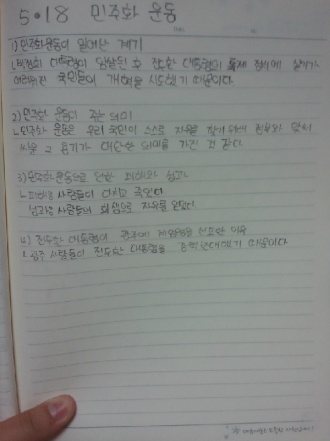 5·18 민주화 운동
1) 민주화운동이 일어난 계기
ㄴ박정희 대통령이 암살된 후 전두환 대통령이 독재 정치에 살기가
어려워진 국민들이 개혁을 시도했기 때문이다
2) 민주화 운동이 주는 의미
ㄴ민주화 운동은 우리 국민이 스스로 자유를 찾기 위해 전부와 맞서
싸운 그 용기가 대단한 의미를 가진 것 같다.
3) 민주화운동으로 인한 피해와 성과는
ㄴ피해는 사람들이 다치고 죽었다
성과는 사람들의 희생으로 자유를 얻었다
4) 전두환 대통령이 광주에 계엄령을 선포한 이유
ㄴ광주 사람들이 전두환 대통령을 반대했기 때문이다